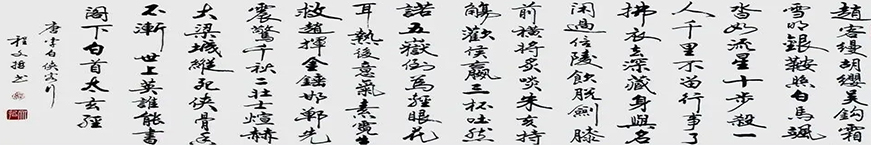 趙客縵胡纓吳鉤霜
雪明銀鞍照白馬颯
沓如流星十步殺一
人千里不留行事了
拂衣去深藏身與名
閑過信陵飲脫劍膝
前橫將炙啖朱亥持
觴勸侯嬴三杯吐然
諾五嶽倒為輕眼花
耳熱後意氣素霓生
救趙揮金錘邯鄲先
震驚千秋二壯士煊赫
大梁城縱死俠骨香
不慚世上英誰能書
閣下白首太玄經
唐李白俠客行
程文书